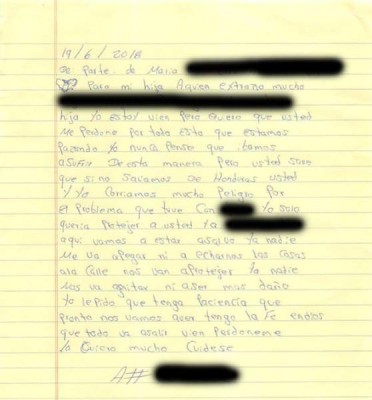 19/6/2018
De Parte. de Maria
Para mi hija Aquien extraño mucho
hija Yo estoy vien Pero quiero que usted
Me Perdone Por todo esto que estamos
Pazando Yo nunca Penso que ibamos
asufrir De esta manera Pero usted sabe
que si no Saliamos de Honduras usted
Y Yo Corriamos mucho Peligro Por
el Problema que tuve Con Yo solo
queria Protejer a usted Ya
aqui vamos a estar asalvo Ya nadie
Me va apegar ni a echarnos las Casas
ala Calle nos van aProtejer Ya nadie
Nos va aquitar ni aser mus daño
Yo le pido que tenga Paciencia que
Pronto nos vamos aver tenga la fe endios
que todo va asalir vien Perdoneme
la Quiero mucho Cuidese
A#